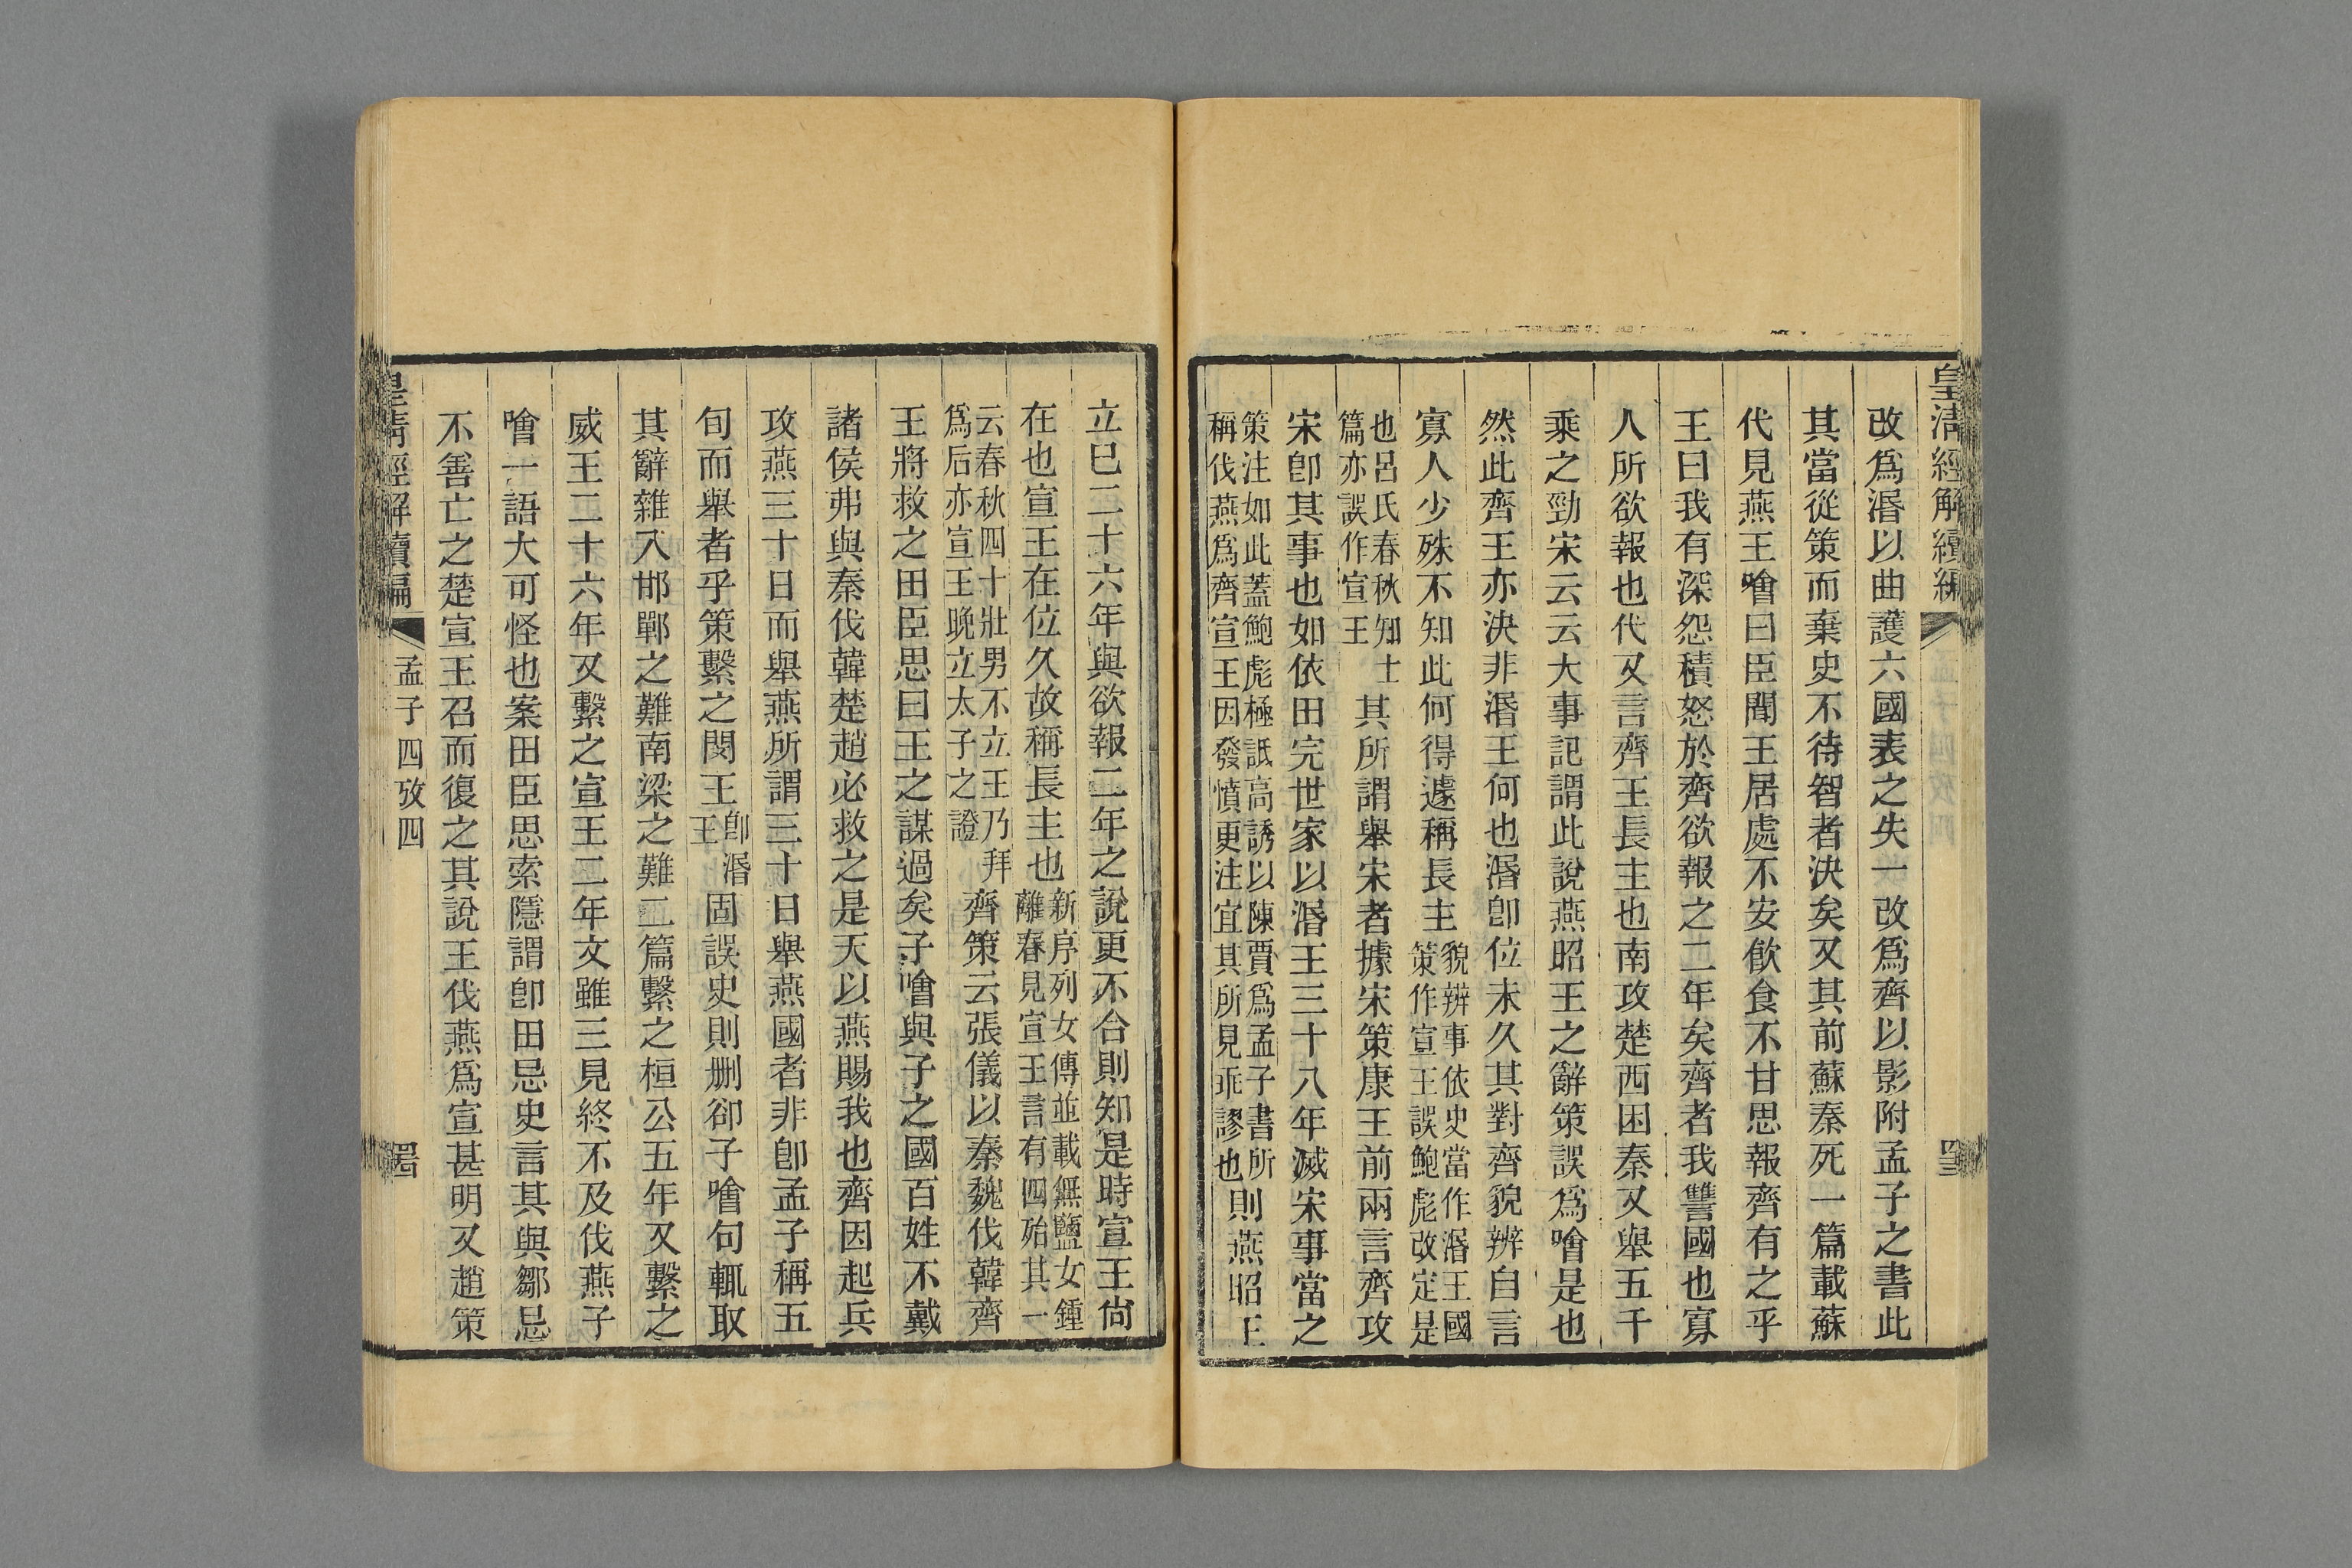 皇清經解續編
改爲湣以曲護六國表之失一改爲齊以影附孟子之書此
其當從策而棄史不待智者決矣又其前蘇秦死一篇載蘇
代見燕王噲曰臣聞王居處不安飮食不甘思報齊有之乎
王曰我有深怨積怒於齊欲報之二年矣齊者我讐國也寡
人所欲報也代又言齊王長主也南攻楚西困秦又舉五千
乘之勁宋云云大事記謂此說燕昭王之辭策誤爲噲是也
然此齊王亦決非湣王何也湣卽位未久其對齊貌辨自言
寡人少殊不知此何得遽稱長主貌辨事依史當作湣王國策作宣王誤鮑彪改定是
也呂氏春秋知士篇亦誤作宣王其所謂舉宋者據宋策康王前兩言齊攻
宋卽其事也如依田完世家以湣王三十八年滅宋事當之
策注如此蓋鮑彪極詆高誘以陳賈爲孟子書所稱伐燕爲齊宣王因發憤更注宜其所見乖謬也則燕昭王
立已二十六年與欲報二年之說更不合則知是時宣王尙
在也宣王在位久故稱長主也新序列女傳並載無鹽女鍾離春見宣王言有四殆其一
云春秋四十壯男不立王乃拜爲后亦宣王晚立太子之證齊策云張儀以秦魏伐韓齊
王將救之田臣思曰王之謀過矣子噲與子之國百姓不戴
諸侯弗與秦伐韓楚趙必救之是天以燕賜我也齊因起兵
攻燕三十日而舉燕所謂三十日舉燕國者非卽孟子稱五
旬而舉者乎策繫之閔王卽湣王固誤史則刪卻子噲句輒取
其辭雜入邯鄲之難南梁之難二篇繫之桓公五年又繫之
威王二十六年又繫之宣王二年文雖三見終不及伐燕子
噲一語大可怪也案田臣思索隱謂卽田忌史言其與鄒忌
不善亡之楚宣王召而復之其說王伐燕爲宣甚明又趙策
皇清經解續編
孟子四攷四